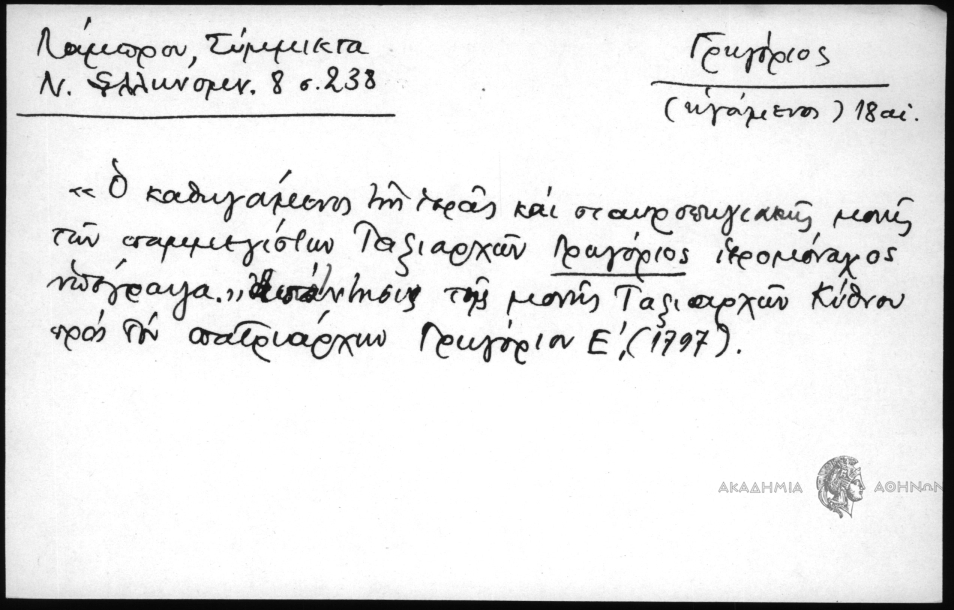 Λάμπρου, Σύμμικτα
Ν. Ἑλληνομν. 8 σ. 238
Γρηγόριος
(ἡγούμενος) 18 αἰ.
«Ὁ καθηγούμενος τῆς ἱερᾶς καὶ σταυροπηγιακῆς μονῆς
τῶν παμμεγίστων Ταξιαρχῶν Γρηγόριος ἱερομόναχος
ὑπέγραψα.» τῆς μονῆς Ταξιαρχῶν Κύθνου
πρὸς τὸν πατριάρχην Γρηγόριον Ε΄, (1797).
ΑΚΑΔΗΜΙΑ ΑΘΗΝΩΝ